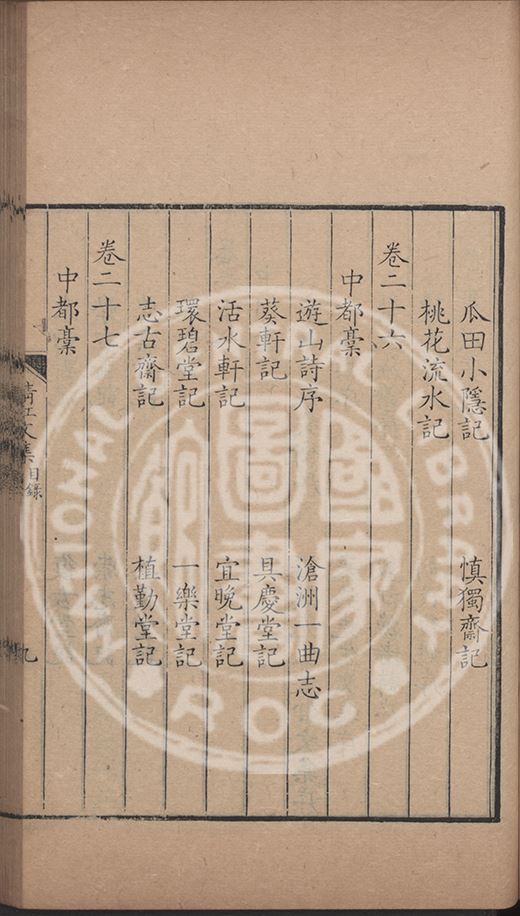 瓜田小隱記　慎獨齋記
桃花流水記
卷二十六
中都稾
遊山詩序　滄洲一曲志
葵軒記　具慶堂記
活水軒記　宜晚堂記
環碧堂記　一樂堂記
志古齋記　植勤堂記
卷二十七
中都稾
清江文集目錄　九
國家圖書館
NATIONAL CENTRAL LIBRARY
R.O.C.